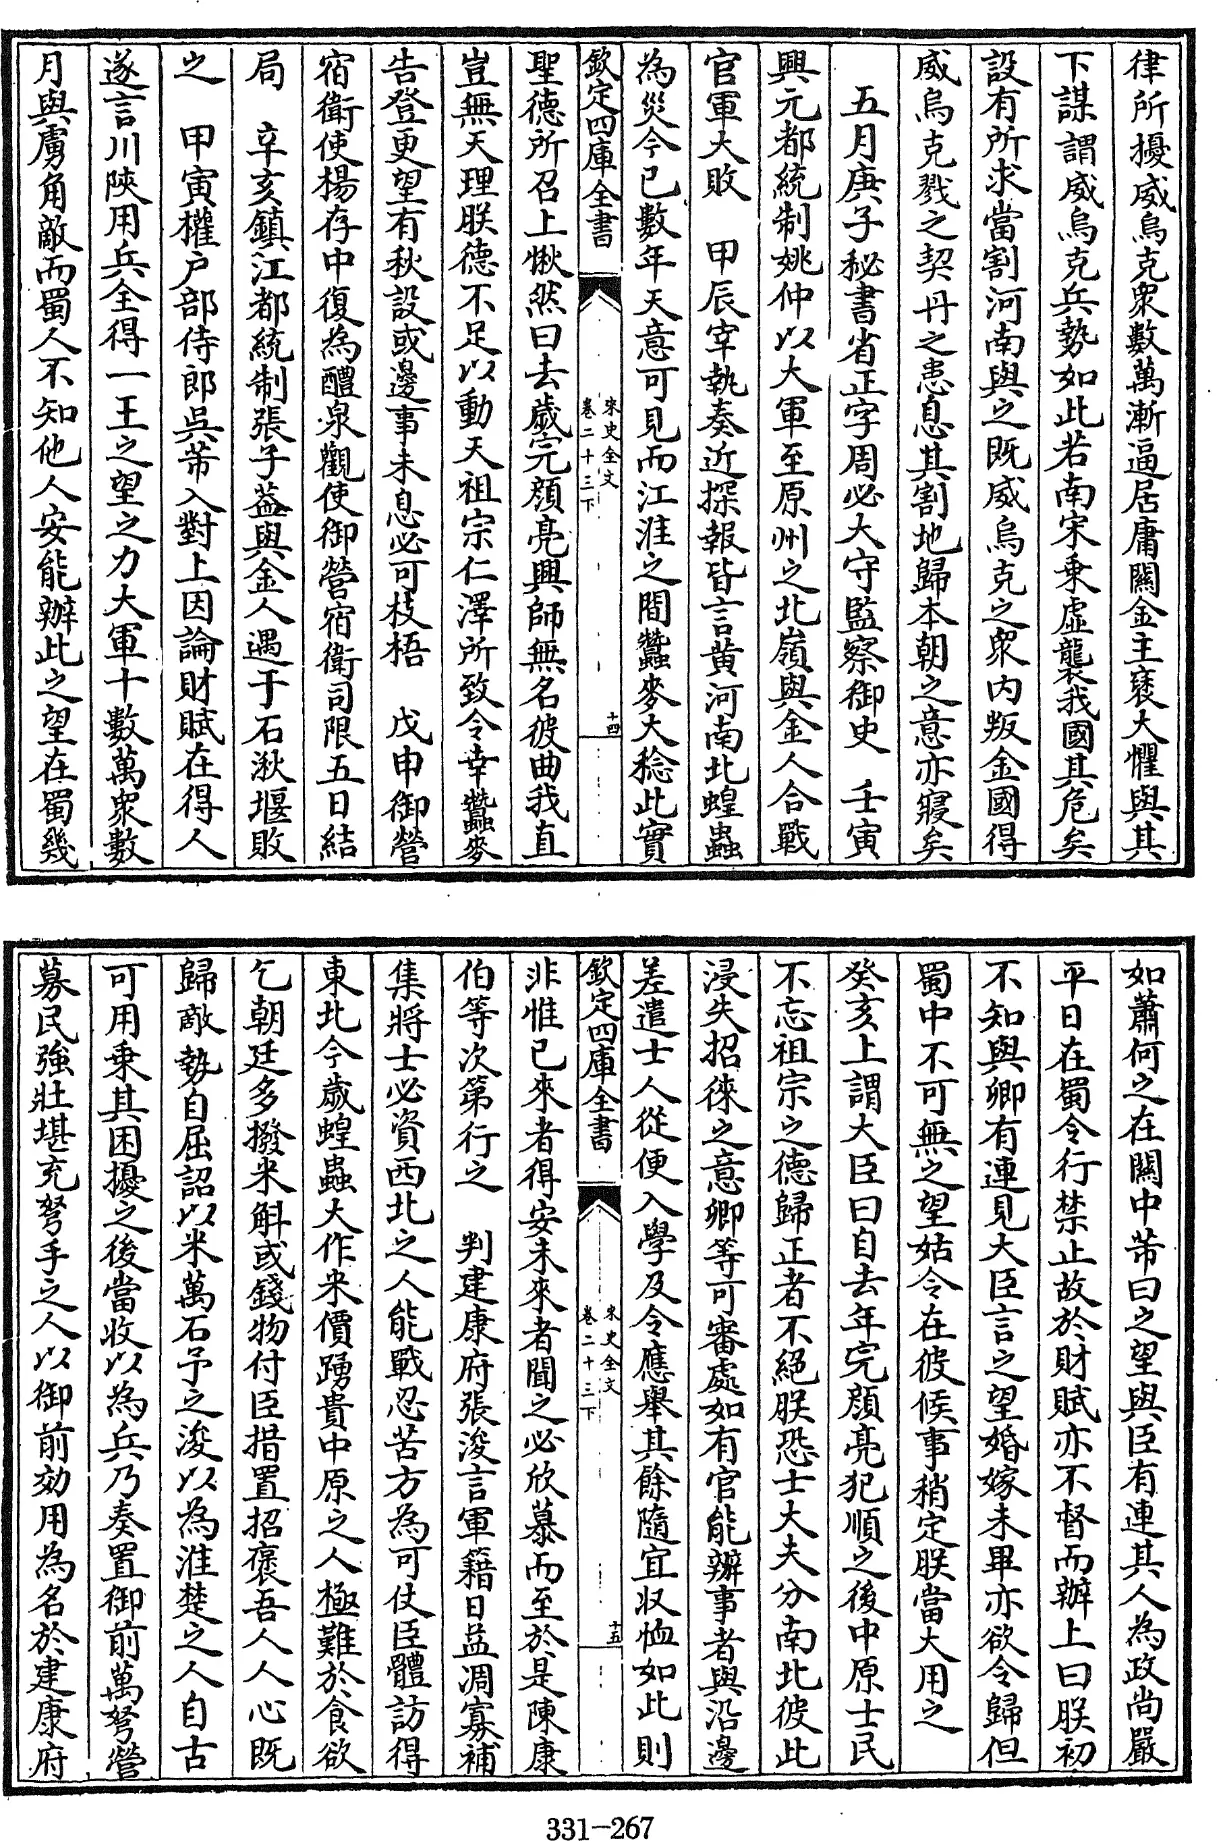 律所擾威烏克衆數萬漸逼居庸關金主褎大懼與其
下謀謂威烏克兵勢如此若南宋乗虚襲我國其危矣
設有所求當割河南與之既威烏克之衆内叛金國得
威烏克戮之契丹之患息其割地歸本朝之意亦寢矣
五月庚子秘書省正字周必大守監察御史　壬寅
興元都統制姚仲以大軍至原州之北嶺與金人合戰
官軍大敗　甲辰宰執奏近探報皆言黄河南北蝗蟲
為災今已數年天意可見而江淮之間蠶麥大稔此實
欽定四庫全書
宋史全文
卷二十三下
十四
聖德所召上愀然曰去歲完顔亮興師無名彼曲我直
豈無天理朕德不足以動天祖宗仁澤所致今幸蠶麥
告登更望有秋設或邊事未息必可枝梧　戊申御營
宿衛使揚存中復為醴泉觀使御營宿衛司限五日結
局　辛亥鎮江都統制張子葢與金人遇于石湫堰敗
之　甲寅權户部侍郎吳芾入對上因論財賦在得人
遂言川陜用兵全得一王之望之力大軍十數萬衆數
月與虜角敵而蜀人不知他人安能辦此之望在蜀幾
如蕭何之在關中芾曰之望與臣有連其人為政尚嚴
平日在蜀令行禁止故於財賦亦不督而辦上曰朕初
不知與卿有連見大臣言之望婚嫁未畢亦欲令歸但
蜀中不可無之望姑令在彼候事稍定朕當大用之
癸亥上謂大臣曰自去年完顔亮犯順之後中原士民
不忘祖宗之德歸正者不絕朕恐士大夫分南北彼此
浸失招徠之意卿等可審處如有官能辦事者與沿邊
差遣士人從便入學及令應舉其餘隨宜収恤如此則
欽定四庫全書
宋史全文
卷二十三下
十五
非惟已來者得安未來者聞之必欣慕而至於是陳康
伯等次第行之　判建康府張浚言軍籍日益凋寡補
集將士必資西北之人能戰忍苦方為可仗臣體訪得
東北今歲蝗蟲大作米價踴貴中原之人極難於食欲
乞朝廷多撥米斛或錢物付臣措置招褒吾人人心既
歸敵勢自屈詔以米萬石予之浚以為淮楚之人自古
可用乗其困擾之後當收以為兵乃奏置御前萬弩營
募民強壯堪充弩手之人以御前効用為名於建康府
331-267